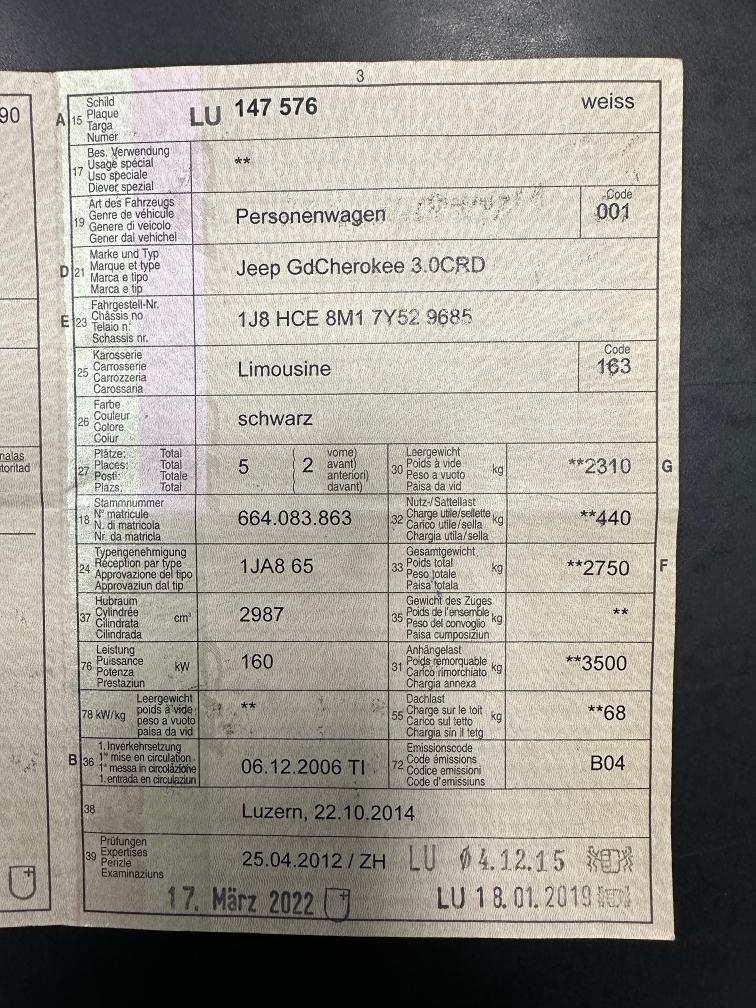 3
90
A 15 Schild
Plaque
Targa
Numer
LU 147 576 weiss
17 Bes. Verwendung
Usage spécial
Uso speciale
Diever spezial
**
19 Art des Fahrzeugs
Genre de véhicule
Genere di veicolo
Gener dal vehichel
Personenwagen
Code
001
D 21 Marke und Typ
Marque et type
Marca e tipo
Marca e tip
Jeep GdCherokee 3.0CRD
E 23 Fahrgestell-Nr.
Châssis no
Telaio n.
Schassis nr.
1J8 HCE 8M1 7Y52 9685
25 Karosserie
Carrosserie
Carrozzeria
Carossaria
Limousine
Code
163
26 Farbe
Couleur
Colore
Colur
schwarz
nalas
toritad
27 Plätze: Total
Places: Total
Posti: Totale
Plazs: Total
5 ( 2 vorne)
avant)
anteriori)
davant)
30 Leergewicht
Poids à vide
Peso a vuoto
Paisa da vid
kg
**2310 G
18 Stammnummer
N° matricule
N. di matricola
Nr. da matricla
664.083.863
32 Nutz-/Sattellast
Charge utile/sellette
Carico utile/sella
Chargia utila/sella
kg
**440
24 Typengenehmigung
Réception par type
Approvazione del tipo
Approvaziun dal tip
1JA8 65
33 Gesamtgewicht
Poids total
Peso totale
Paisa totala
kg
**2750 F
37 Hubraum
Cylindrée
Cilindrata
Cilindrada
cm³
2987
35 Gewicht des Zuges
Poids de l'ensemble
Peso del convoglio
Paisa cumposiziun
kg
**
76 Leistung
Puissance
Potenza
Prestaziun
kW
160
31 Anhängelast
Poids remorquable
Carico rimorchiato
Chargia annexa
kg
**3500
78 kW/kg Leergewicht
poids à vide
peso a vuoto
paisa da vid
**
55 Dachlast
Charge sur le toit
Carico sul tetto
Chargia sin il tetg
kg
**68
B 36 1. Inverkehrsetzung
1re mise en circulation
1a messa in circolazione
1. entrada en circulaziun
06.12.2006 TI
72 Emissionscode
Code émissions
Codice emissioni
Code d'emissiuns
B04
38 Luzern, 22.10.2014
39 Prüfungen
Expertises
Perizie
Examinaziuns
25.04.2012 / ZH LU 04.12.15
17. März 2022 LU 18.01.2019